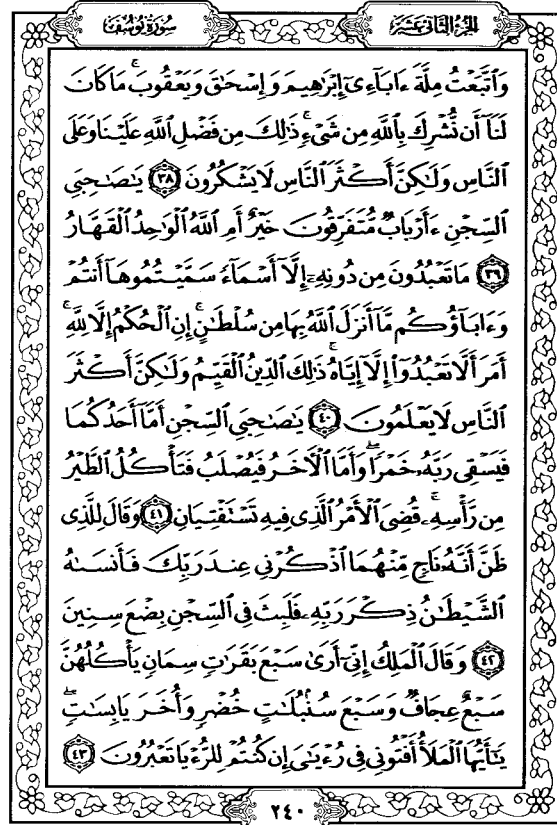 سُورَةُ يُوسُفَ
الجزء الثاني عشر
وَٱتَّبَعْتُ مِلَّةَ ءَابَآءِىٓ إِبْرَٰهِيمَ وَإِسْحَٰقَ وَيَعْقُوبَ ۚ مَا كَانَ
لَنَآ أَن نُّشْرِكَ بِٱللَّهِ مِن شَىْءٍ ۚ ذَٰلِكَ مِن فَضْلِ ٱللَّهِ عَلَيْنَا وَعَلَى
ٱلنَّاسِ وَلَٰكِنَّ أَكْثَرَ ٱلنَّاسِ لَا يَشْكُرُونَ ٣٨ يَٰصَىٰحِبَىِ
ٱلسِّجْنِ ءَأَرْبَابٌ مُّتَفَرِّقُونَ خَيْرٌ أَمِ ٱللَّهُ ٱلْوَٰحِدُ ٱلْقَهَّارُ
٣٩ مَا تَعْبُدُونَ مِن دُونِهِۦٓ إِلَّآ أَسْمَآءً سَمَّيْتُمُوهَآ أَنتُمْ
وَءَابَآؤُكُم مَّآ أَنزَلَ ٱللَّهُ بِهَا مِن سُلْطَٰنٍ ۚ إِنِ ٱلْحُكْمُ إِلَّا لِلَّهِ ۚ
أَمَرَ أَلَّا تَعْبُدُوٓا۟ إِلَّآ إِيَّاهُ ۚ ذَٰلِكَ ٱلدِّينُ ٱلْقَيِّمُ وَلَٰكِنَّ أَكْثَرَ
ٱلنَّاسِ لَا يَعْلَمُونَ ٤٠ يَٰصَىٰحِبَىِ ٱلسِّجْنِ أَمَّآ أَحَدُكُمَا
فَيَسْقِى رَبَّهُۥ خَمْرًا ۖ وَأَمَّا ٱلْءَاخَرُ فَيُصْلَبُ فَتَأْكُلُ ٱلطَّيْرُ
مِن رَّأْسِهِۦ ۚ قُضِىَ ٱلْأَمْرُ ٱلَّذِى فِيهِ تَسْتَفْتِيَانِ ٤١ وَقَالَ لِلَّذِى
ظَنَّ أَنَّهُۥ نَاجٍ مِّنْهُمَا ٱذْكُرْنِى عِندَ رَبِّكَ فَأَنسَىٰهُ
ٱلشَّيْطَٰنُ ذِكْرَ رَبِّهِۦ فَلَبِثَ فِى ٱلسِّجْنِ بِضْعَ سِنِينَ
٤٢ وَقَالَ ٱلْمَلِكُ إِنِّىٓ أَرَىٰ سَبْعَ بَقَرَٰتٍ سِمَانٍ يَأْكُلُهُنَّ
سَبْعٌ عِجَافٌ وَسَبْعَ سُنۢبُلَٰتٍ خُضْرٍ وَأُخَرَ يَابِسَٰتٍ ۖ
يَٰٓأَيُّهَا ٱلْمَلَأُ أَفْتُونِى فِى رُءْيَٰىَ إِن كُنتُمْ لِلرُّءْيَا تَعْبُرُونَ ٤٣
٢٤٠